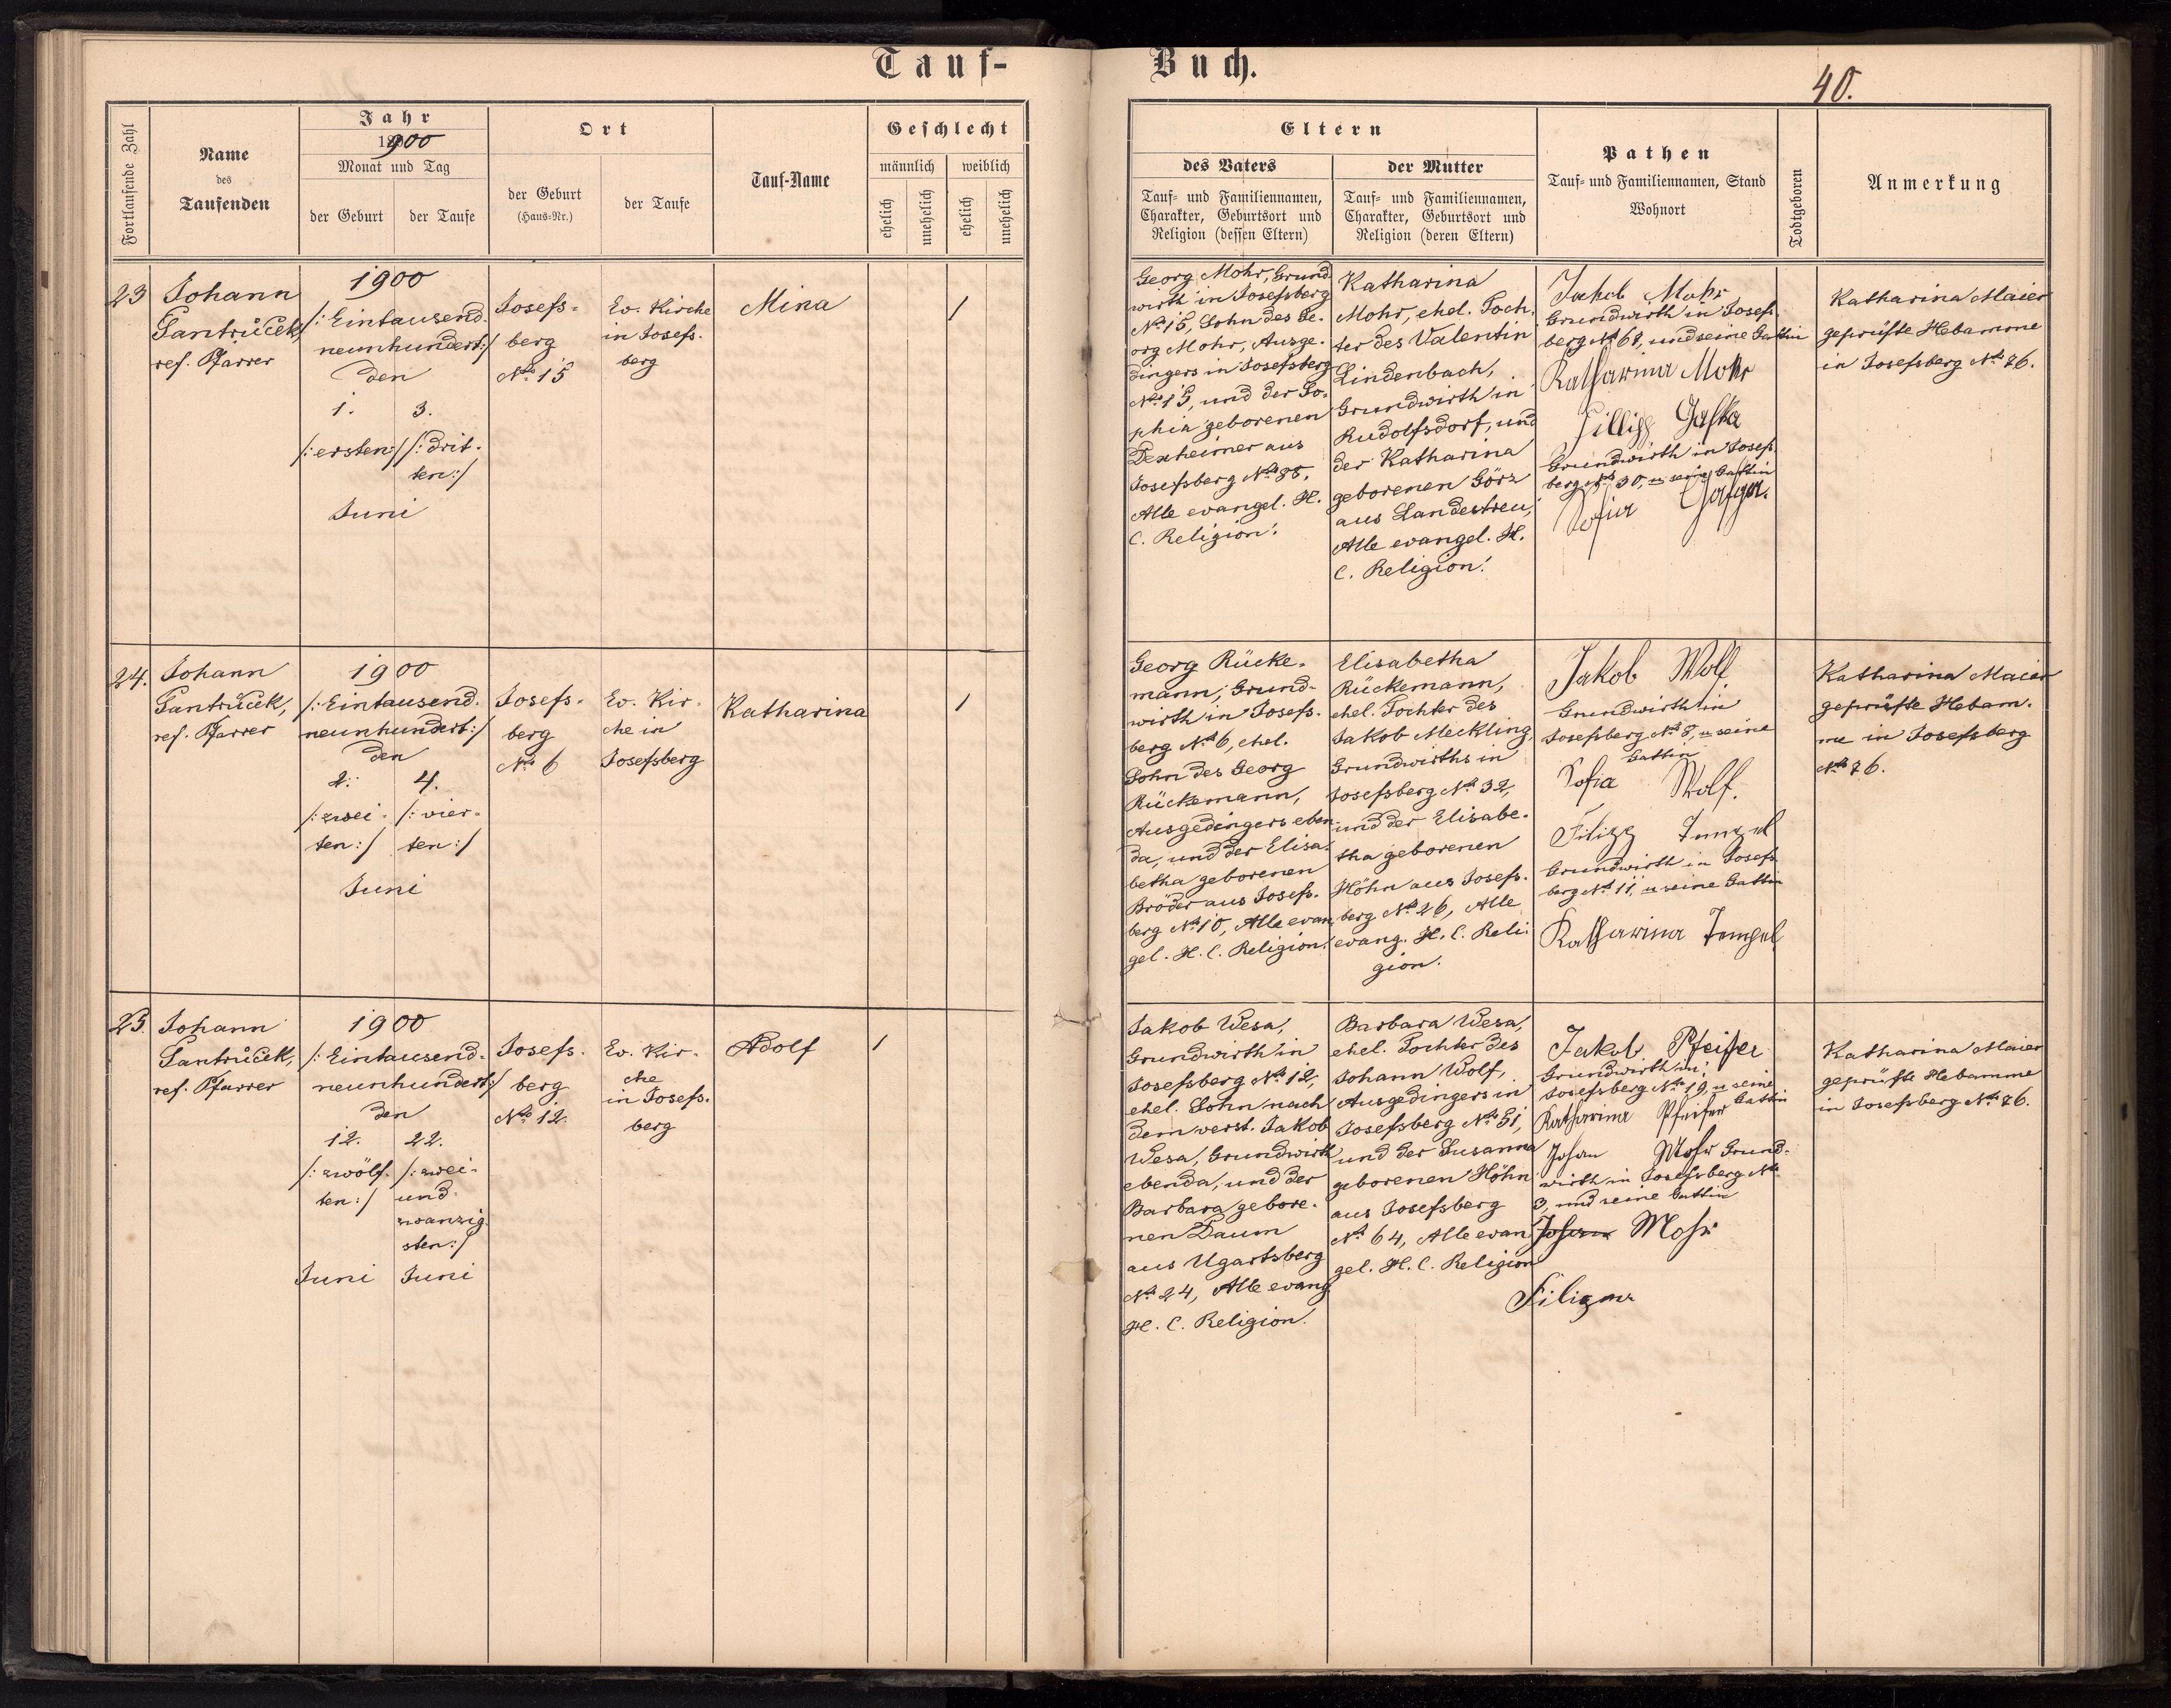 Tauf-Buch.
40.
Fortlaufende Zahl
Name
des
Taufenden
Jahr
1900
Monat und Tag
der Geburt
der Taufe
Ort
der Geburt
(Haus-Nr.)
der Taufe
Tauf-Name
Geschlecht
männlich
weiblich
ehelich
unehelich
ehelich
unehelich
Eltern
des Vaters
Tauf- und Familiennamen,
Charakter, Geburtsort und
Religion (dessen Eltern)
der Mutter
Tauf- und Familiennamen,
Charakter, Geburtsort und
Religion (deren Eltern)
Pathen
Tauf- und Familiennamen, Stand
Wohnort
Todtgeboren
Anmerkung
23
Johann
Jantrůček,
ref. Pfarrer
1900
/: Eintausend-
neunhundert:/
den
1.
/: ersten:/
3.
/: drit-
ten:/
Juni
Josefs-
berg
No 15
Ev. Kirche
in Josefs-
berg
Mina
1
Georg Mohr, Grund-
wirth in Josefsberg
No 15, Sohn des Ge-
org Mohr, Ausge-
dingers in Josefsberg
No 15, und der So-
phia geborenen
Dexheimer aus
Josefsberg No 85,
Alle evangel. H.
C. Religion.
Katharina
Mohr, ehel. Toch-
ter des Valentin
Lindenbach,
Grundwirth in
Rudolfsdorf, und
der Katharina
geborenen Görz
aus Landestreu,
Alle evangel. H.
C. Religion.
Jakob Mohr
Grundwirth in Josefs-
berg No 68, und seine Gattin
Katharina Mohr
Grundwirth in Josefs-
berg No 30, u. seine Gattin
Sofia
Katharina Maier
geprüfte Hebamme
in Josefsberg No 76.
24.
Johann
Jantrůček,
ref. Pfarrer
1900
/: Eintausend-
neunhundert:/
den
2.
/: zwei-
ten:/
4.
/: vier-
ten:/
Juni
Josefs-
berg
No 6
Ev. Kir-
che in
Josefsberg
Katharina
1
Georg Rücke-
mann, Grund-
wirth in Josefs-
berg No 6, ehel.
Sohn des Georg
Rückemann,
Ausgedingers eben-
da, und der Elisa-
betha geborenen
Bröder aus Josefs-
berg No 10, Alle evan-
gel. H. C. Religion.
Elisabetha
Rückemann,
ehel. Tochter des
Jakob Meckling,
Grundwirths in
Josefsberg No 32,
und der Elisabe-
tha geborenen
Höhn aus Josefs-
berg No 26, Alle
evang. H. C. Reli-
gion.
Jakob Wolf
Grundwirth in
Josefsberg No 8, u. seine
Gattin
Sofia Wolf.
Grundwirth in Josefs-
berg No 11, u. seine Gattin
Katharina Tempel
Katharina Maier
geprüfte Hebam-
me in Josefsberg
No 76.
25.
Johann
Jantrůček,
ref. Pfarrer
1900
/: Eintausend-
neunhundert:/
den
12.
/: zwölf-
ten:/
Juni
22.
/: zwei-
und-
zwanzig-
sten:/
Juni
Josefs-
berg
No 12.
Ev. Kir-
che
in Josefs-
berg
Adolf
1
Jakob Wesa,
Grundwirth in
Josefsberg No 12,
ehel. Sohn nach
dem verst. Jakob
Wesa, Grundwirth
ebenda, und der
Barbara gebore-
nen Daum
aus Ugartsberg
No 24, Alle evang.
H. C. Religion.
Barbara Wesa,
ehel. Tochter des
Johann Wolf,
Ausgedingers in
Josefsberg No 51,
und der Susanna
geborenen Höhn
aus Josefsberg
No 64, Alle evan-
gel. H. C. Religion
Jakob Pfeifer
Grundwirth in
Josefsberg No 19, u. seine
Gattin
Katharina Pfeifer
Johan Mohr Grund-
wirth in Josefsberg No
3, und seine Gattin
Mohr
Katharina Maier
geprüfte Hebamme
in Josefsberg No 76.